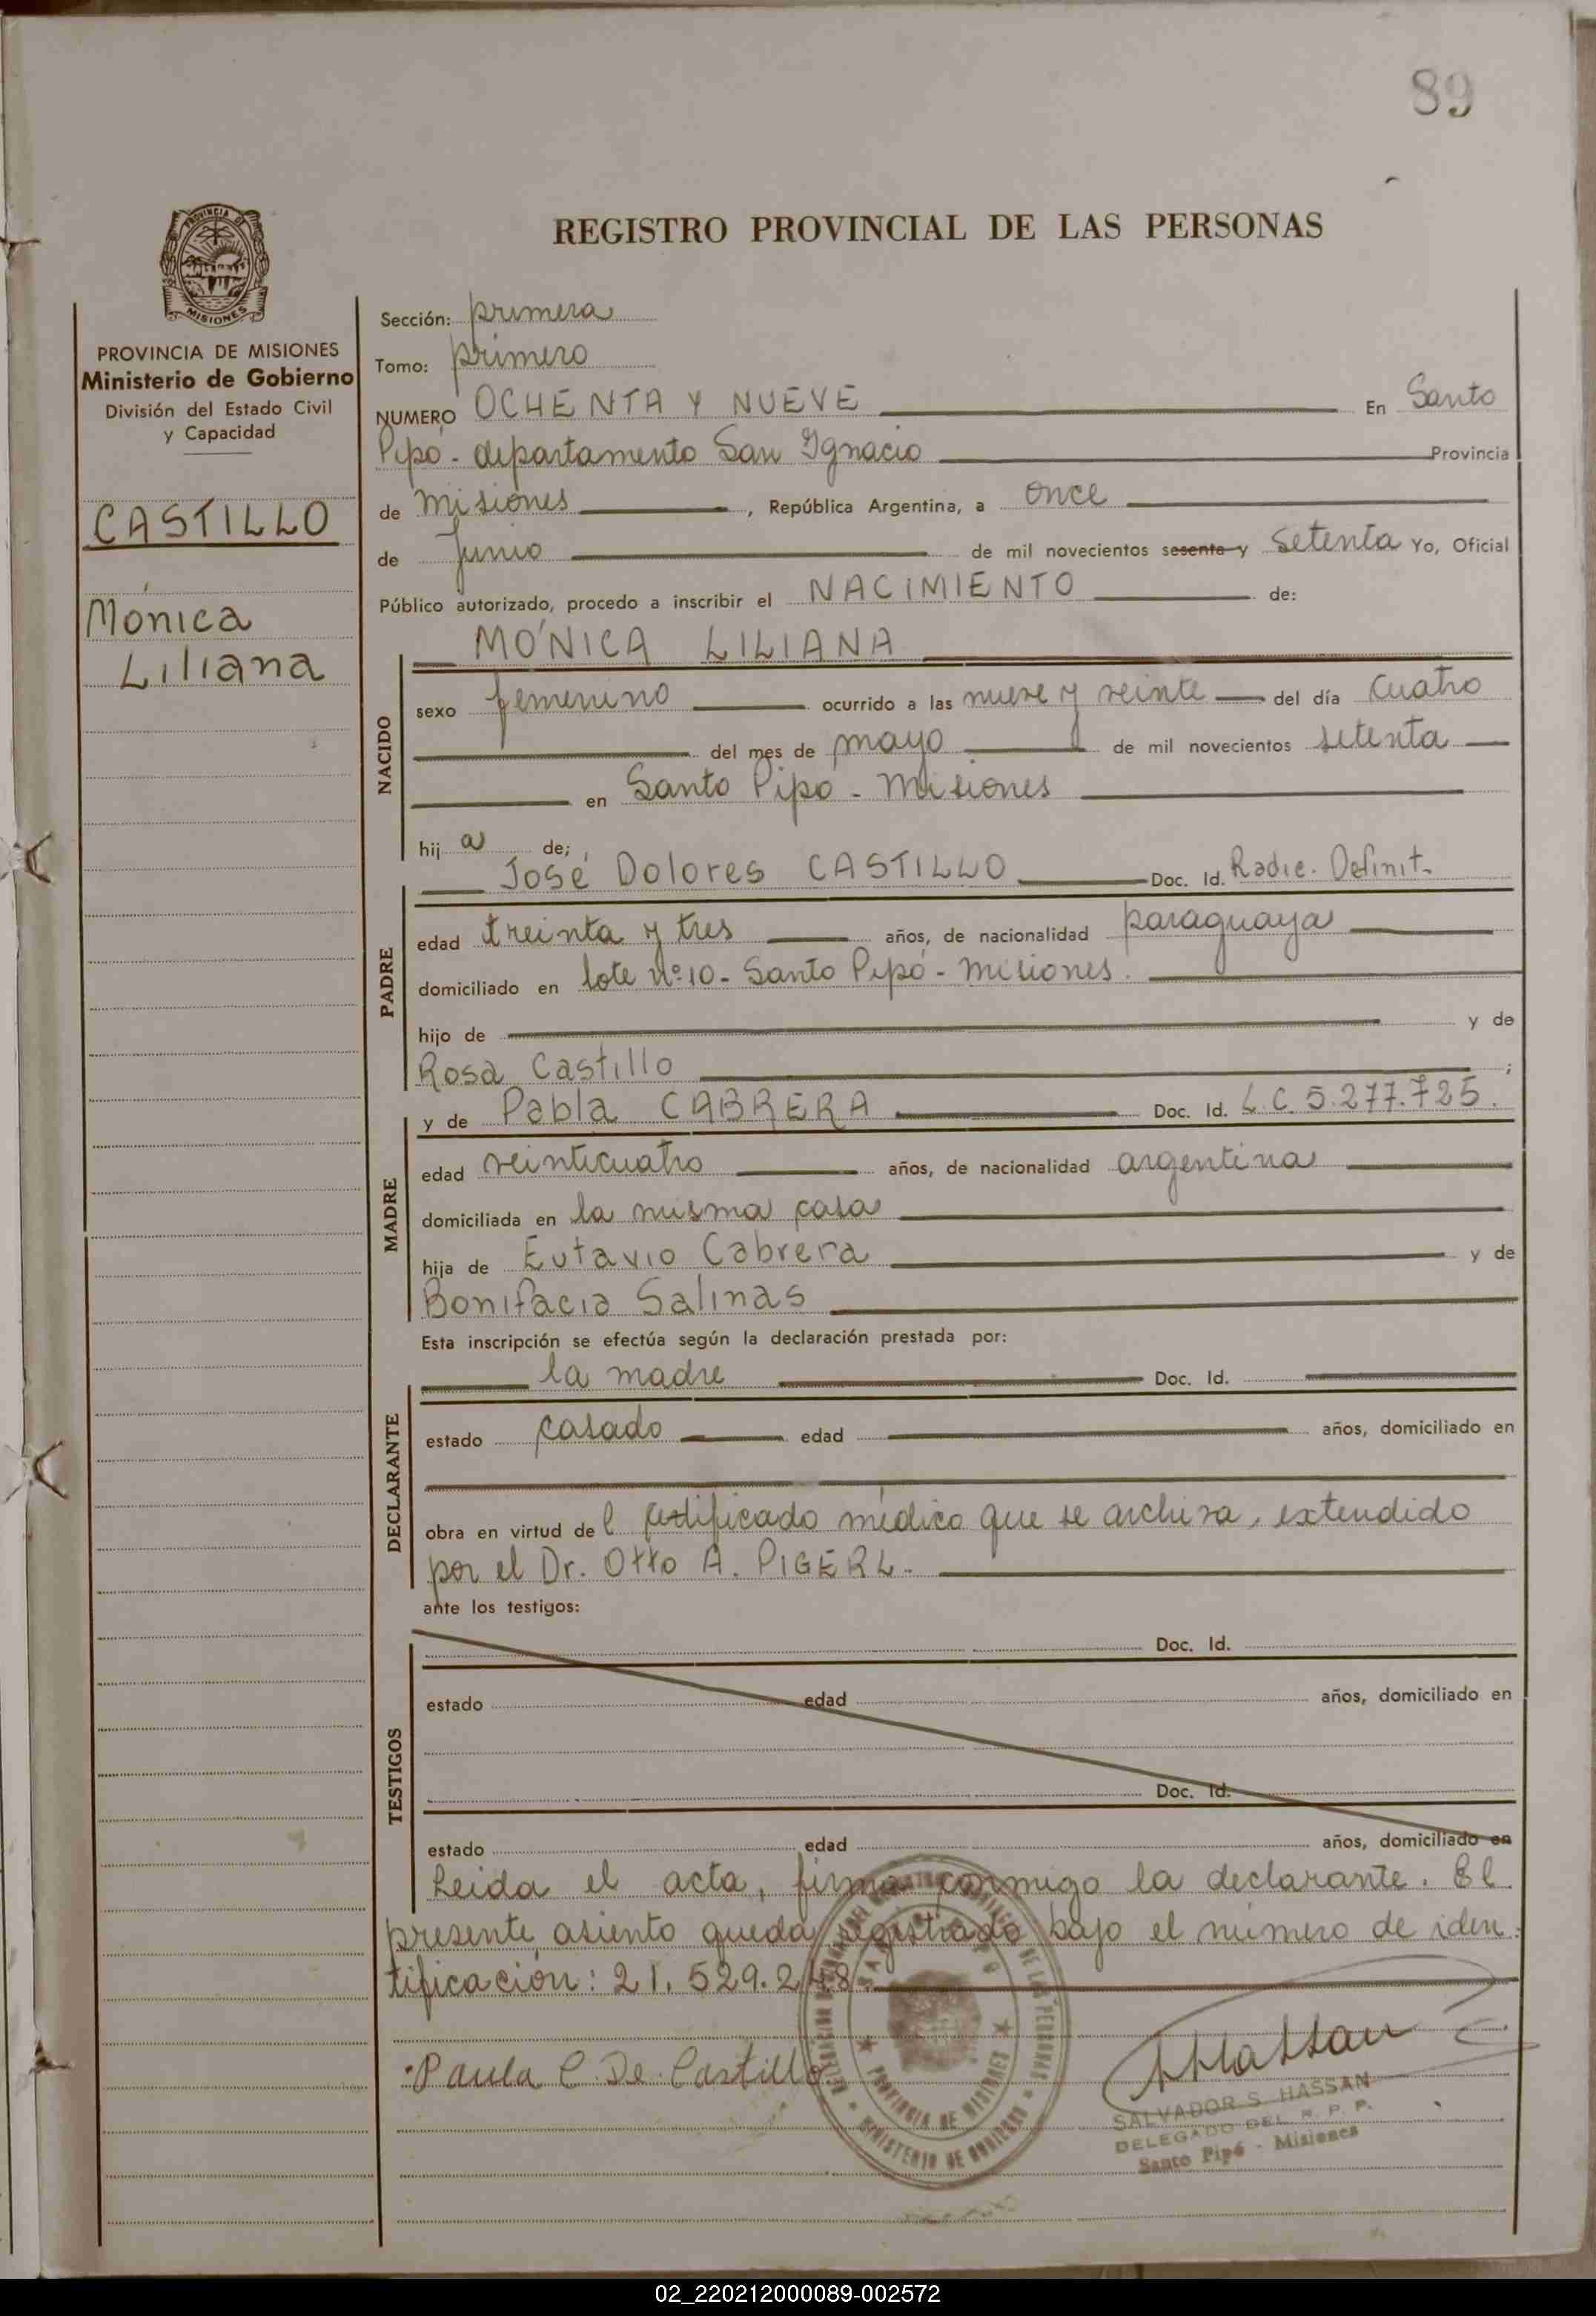 89
PROVINCIA DE
MISIONES
REGISTRO PROVINCIAL DE LAS PERSONAS
PROVINCIA DE MISIONES
Ministerio de Gobierno
División del Estado Civil
y Capacidad
CASTILLO
Mónica
Liliana
Sección: primera
Tomo: primero
NUMERO OCHENTA Y NUEVE En Santo
Pipó - departamento San Ignacio Provincia
de Misiones, República Argentina, a once
de Junio de mil novecientos sesenta y setenta Yo, Oficial
Público autorizado, procedo a inscribir el NACIMIENTO de:
MÓNICA LILIANA
NACIDO
sexo femenino ocurrido a las nueve y veinte del día cuatro
del mes de mayo de mil novecientos setenta
en Santo Pipó - Misiones
hij a de;
José Dolores CASTILLO Doc. Id. Radic. Definit.
PADRE
edad treinta y tres años, de nacionalidad paraguaya
domiciliado en lote nº 10 - Santo Pipó - Misiones.
hijo de y de
Rosa Castillo ;
y de Pabla CABRERA Doc. Id. L.C. 5.277.725.
MADRE
edad veinticuatro años, de nacionalidad argentina
domiciliada en la misma casa
hija de Eutavio Cabrera y de
Bonifacia Salinas
Esta inscripción se efectúa según la declaración prestada por:
la madre Doc. Id.
DECLARANTE
estado casado edad años, domiciliado en
obra en virtud de l certificado médico que se archiva, extendido
por el Dr. Otto A. PIGERL.
ante los testigos:
TESTIGOS
Doc. Id.
estado edad años, domiciliado en
Doc. Id.
estado edad años, domiciliado en
Leida el acta, firma conmigo la declarante. El
presente asiento queda registrado bajo el número de iden
tificación: 21.529.248.
Paula C. De. Castillo
PROVINCIA DE MISIONES
MINISTERIO DE GOBIERNO
SALVADOR S. HASSAN
DELEGADO DEL R. P. P.
Santo Pipó - Misiones
02_220212000089-002572